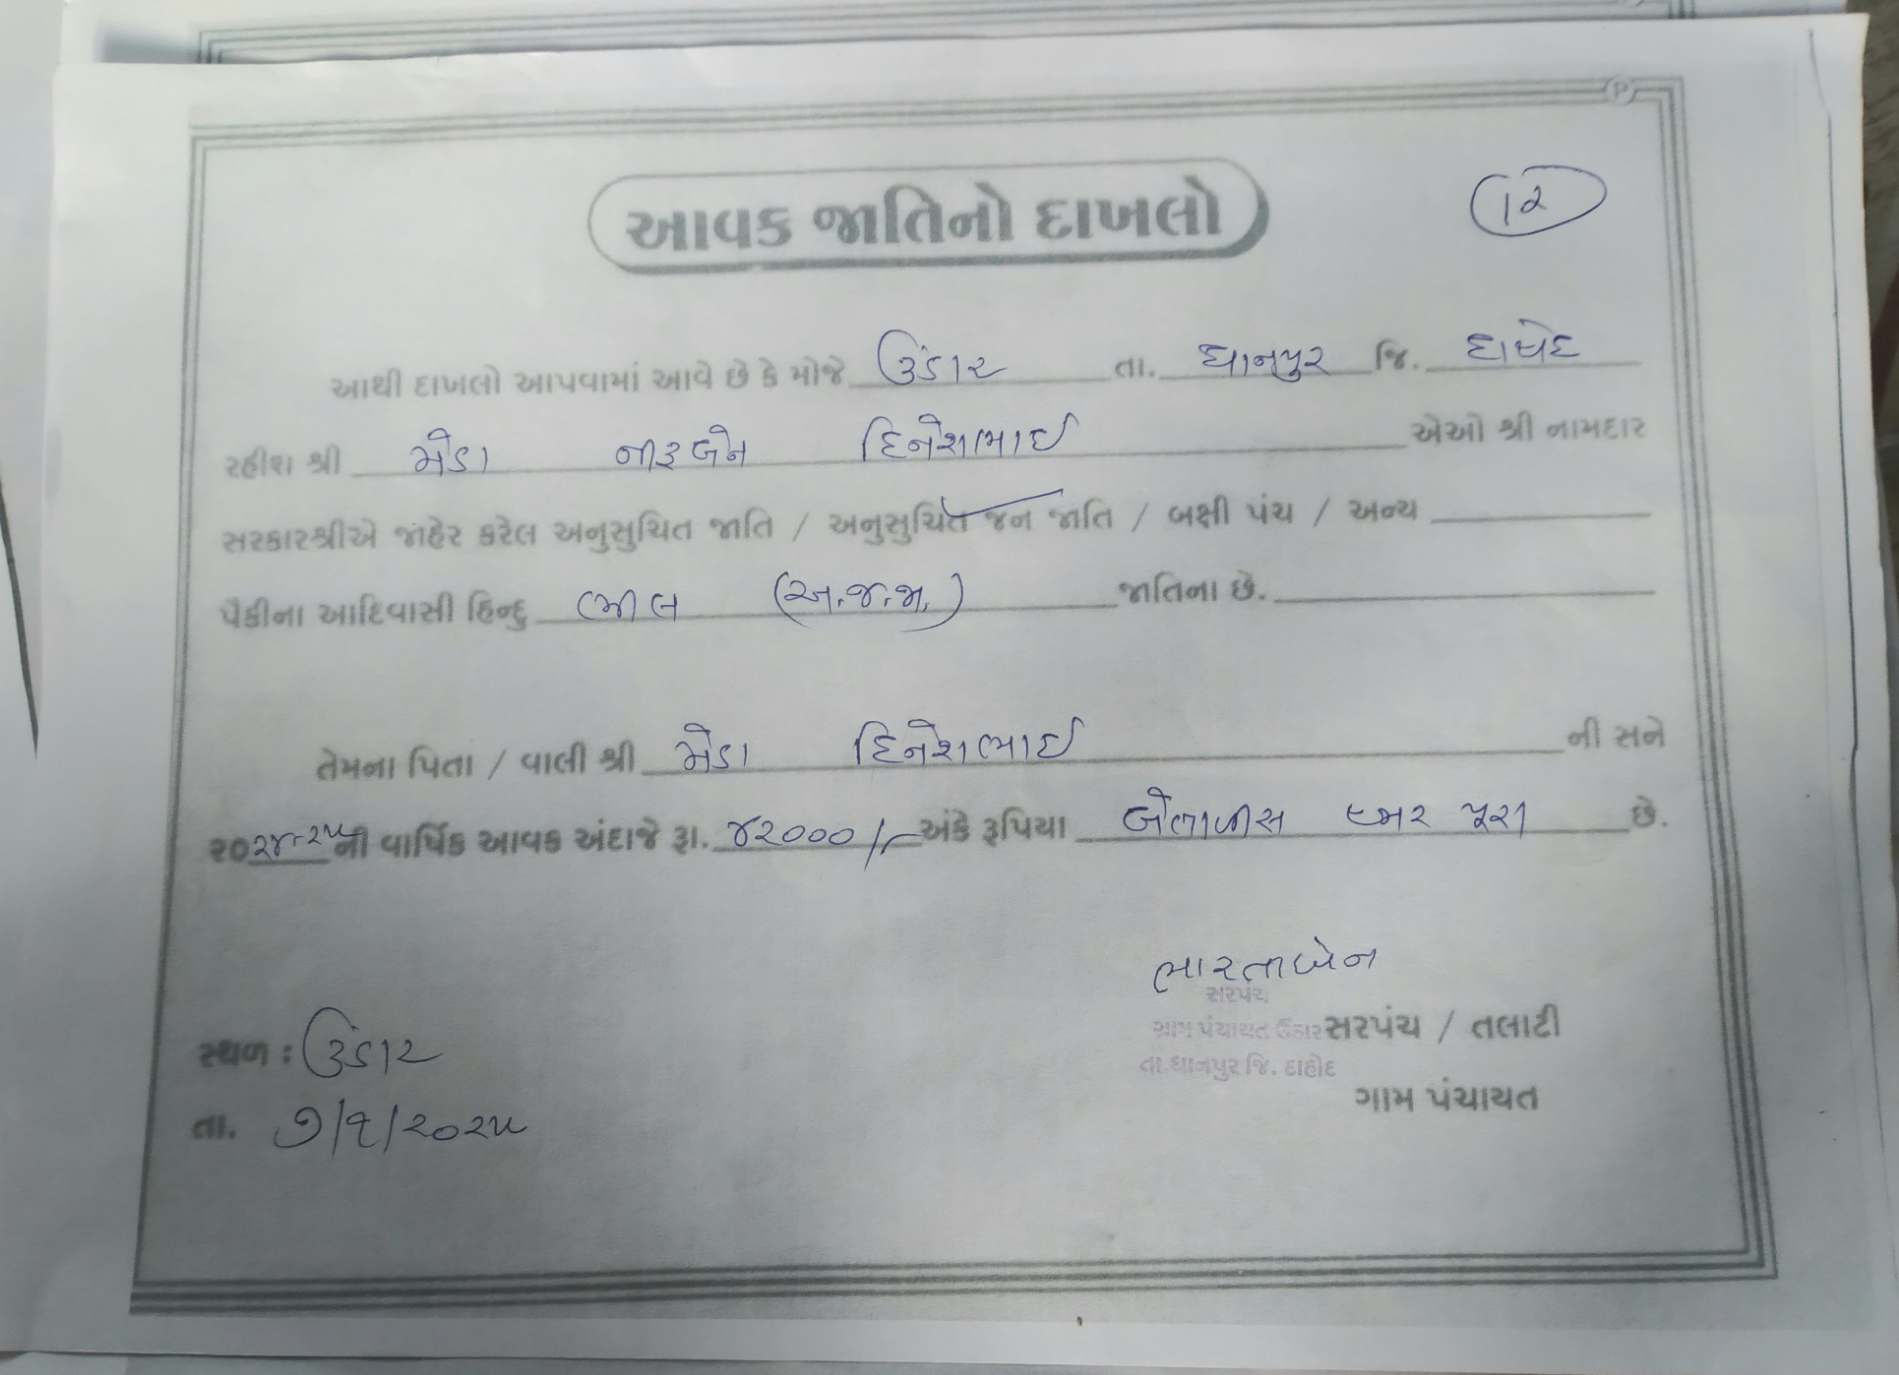 આવક જાતિનો દાખલો
12
આથી દાખલો આપવામાં આવે છે કે મોજે ઉંડાર તા. ધાનપુર જિ. દાહોદ
રહીશ શ્રી મેડા નારૂબેન દિનેશભાઈ એઓ શ્રી નામદાર
સરકારશ્રીએ જાહેર કરેલ અનુસુચિત જાતિ / અનુસુચિત જન જાતિ / બક્ષી પંચ / અન્ય
પૈકીના આદિવાસી હિન્દુ ભીલ (અ.જ.જા.) જાતિના છે.
તેમના પિતા / વાલી શ્રી મેડા દિનેશભાઈ ની સને
૨૦૨૪-૨૫ની વાર્ષિક આવક અંદાજે રૂા. ૪૨૦૦૦/- અંકે રૂપિયા બેતાળીસ હજાર પૂરા છે.
ભારતાબેન
સરપંચ
ગ્રામ પંચાયત ઉંડાર સરપંચ / તલાટી
સ્થળ : ઉંડાર
તા.ધાનપુર જિ. દાહોદ
ગામ પંચાયત
તા. ૭/૧/૨૦૨૫